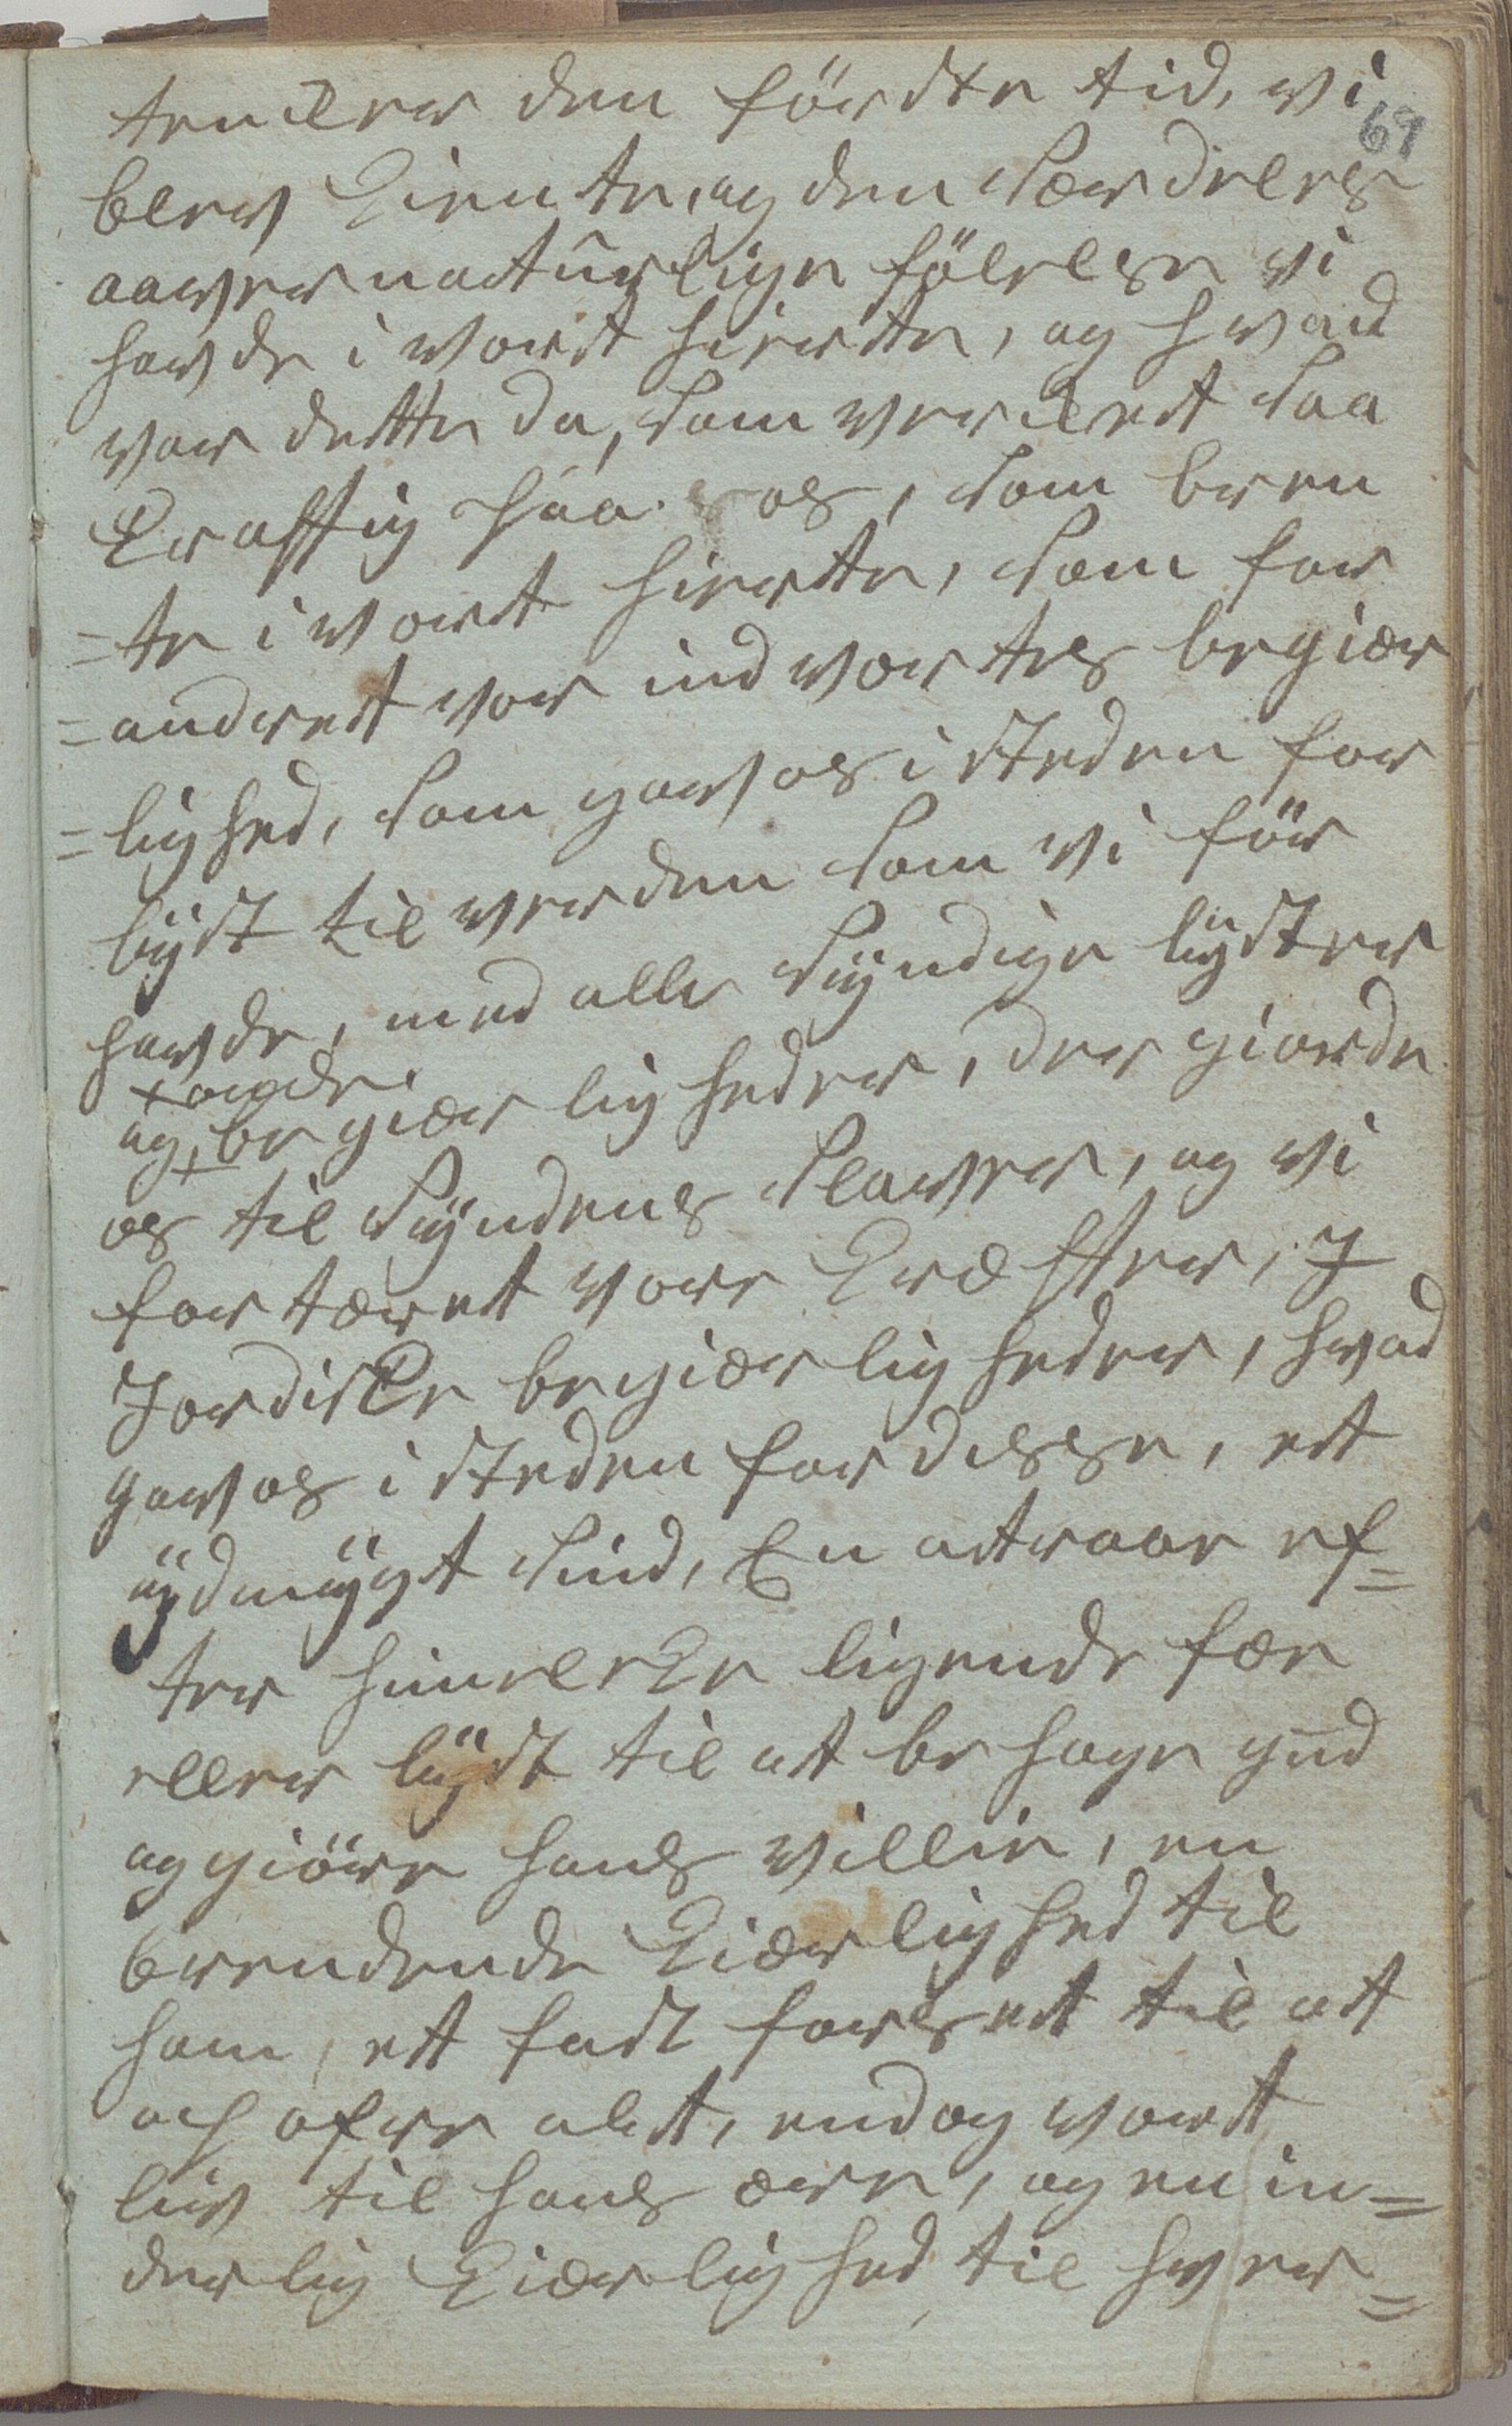 tencker den förste tid, vi
69
blew kiente, og den særdeles
aawernatürlige fölelse vi
hawde i vort hierte, og hvad
var dette da, som vercket saa
kraftig paa os, som bren
=te i vort hierte, som for
=andret vor indvortes begiær
=lighed, som gaw os i steden for
lÿst til verden som vi för
hawde, med alle sÿndige lÿster
+ onde
og + begiærligheder, der giorde
os til sÿndens slawer, og vi
fortæret vore kræfter, I
Jordiske begiærligheder, hvad
gaw os i steden for disse, et
ÿdmÿgt sind, En atraae ef=
ter himelske ligende fæe
eller lÿst til at behage gud
og giöre hans villie, en
brendende kiærlighed til
ham, et fast forset til at
op ofre alt, endog vort
liv til hans ære, og en in=
derlig kiærlighed til hver=